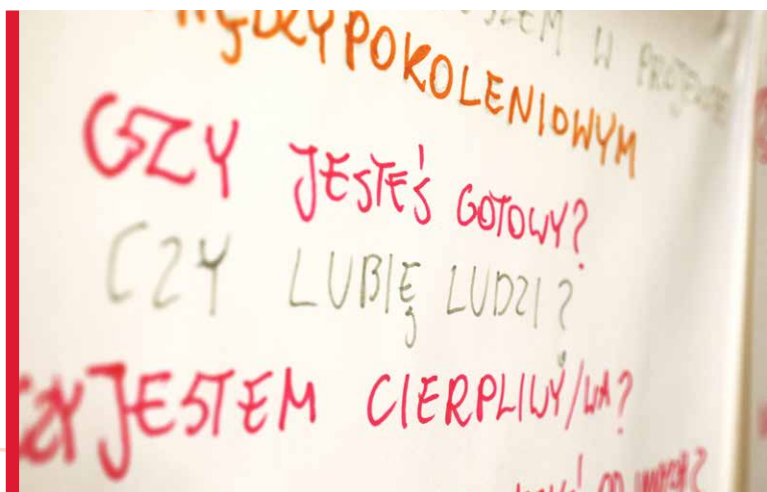 W PROJEKCIE
MIĘDZYPOKOLENIOWYM
CZY JESTEŚ GOTOWY?
CZY LUBIĘ LUDZI?
CZY JESTEM CIERPLIWY/WA?